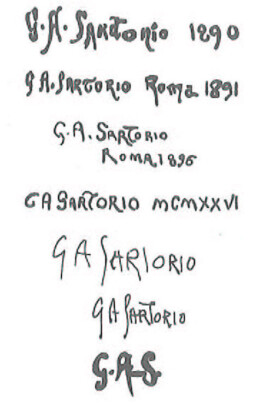 G. A. SARTORIO 1890
G A. SARTORIO Roma 1891
G. A. SARTORIO
ROMA, 1896
G A SARTORIO MCMXXVI
G A SARTORIO
G A SARTORIO
G. A. S.